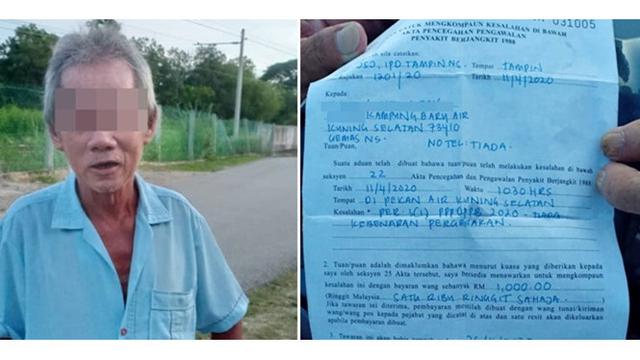 031005
UNTUK MENGKOMPAUN KESALAHAN DI BAWAH
AKTA PENCEGAHAN PENGAWALAN
PENYAKIT BERJANGKIT 1988
sila catatkan:
OSO, IPD TAMPIN NS. Tempat TAMPIN
Rujukan 1201/20 Tarikh 11/4/2020
Kepada:
KAMPUNG BARU AIR
KUNING SELATAN 73410
GEMAS NS.
Tuan/Puan, NO TEL: TIADA.
Suatu aduan telah dibuat bahawa tuan/puan telah melakukan kesalahan di bawah
seksyen 22 Akta Pencegahan dan Pengawalan Penyakit Berjangkit 1988
Tarikh 11/4/2020 Waktu 1030 HRS
Tempat DI PEKAN AIR KUNING SELATAN
Kesalahan * PER 2020 - TIADA
KEBENARAN PERGERAKAN.
2. Tuan/puan adalah dimaklumkan bahawa menurut kuasa yang diberikan kepada
saya oleh seksyen 25 Akta tersebut, saya bersedia menawarkan untuk mengkompaun
kesalahan ini dengan bayaran wang sebanyak RM 1,000.00
(Ringgit Malaysia SATU RIBU RINGGIT SAHAJA.)
Jika tawaran ini diterima, pembayaran hendaklah dibuat dengan wang tunai/kiriman
wang/wang pos kepada pejabat yang dicatat di atas dan satu resit akan dikeluarkan
apabila pembayaran dibuat.
3. Tawaran ini